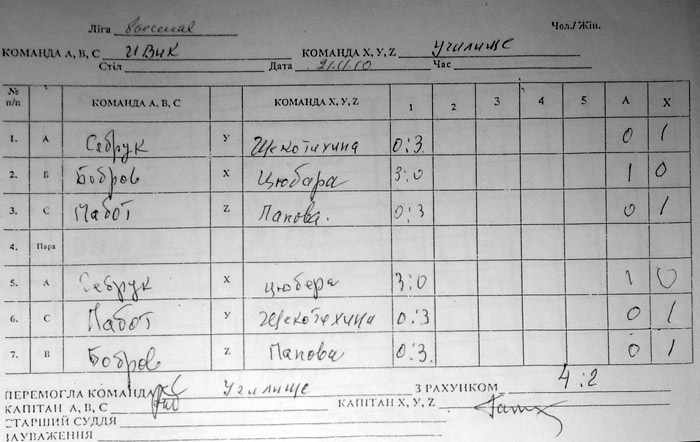 Ліга восьмая Чол./Жін.
КОМАНДА А, В, С ИВиК КОМАНДА X, Y, Z Училище
Стіл Дата 21.11.10 Час
№ п/п КОМАНДА А, В, С КОМАНДА X, Y, Z 1 2 3 4 5 А X
1. А Себрук У Щекотихина 0:3 0 1
2. В Бобров X Цюбара 3:0 1 0
3. С Пабот Z Папова. 0:3 0 1
4. Пара
5. А Себрук X Цюбера 3:0 1 0
6. С Пабот У Щекотихина 0:3 0 1
7. В Бобров Z Папова 0:3. 0 1
ПЕРЕМОГЛА КОМАНДА Училище З РАХУНКОМ 4:2
КАПІТАН А, В, С КАПІТАН X, Y, Z
СТАРШИЙ СУДДЯ
ЗАУВАЖЕННЯ